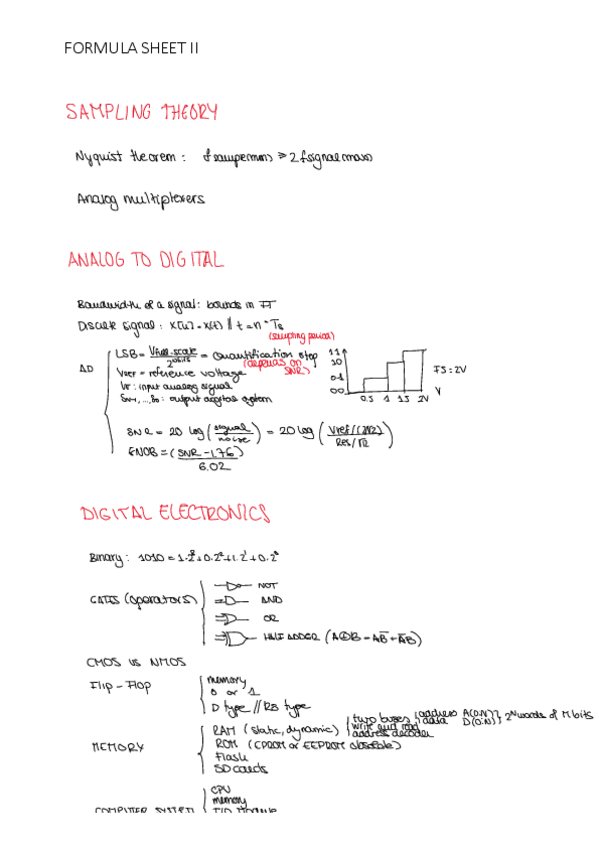 FORMULA SHEET II
SAMPLING THEORY
Nyquist theorem : fsampemons ≥ 2 fsignal(max)
Analog multiplexers
ANALOG TO DIGITAL
Bandwidth of a signal: bounds in
Discrete signal : x[n] = x(t) // t = n · Ts
(sampling period)
AD
LSB = Vfull-scale / 2^bits = quantification step
(depends on SNR)
VREF = reference voltage
Vi : input analog signal
SN-1, ..., S0 : output digital system
11
10
01
00
0.5 1 1.5 2V
V
FS: 2V
SNR = 20 log (signal / noise) = 20 log (Vref/(2√2) / Res/√12)
ENOB = (SNR - 1.76) / 6.02
DIGITAL ELECTRONICS
Binary : 1010 = 1·2³+0·2²+1·2¹+0·2⁰
GATES (operators)
NOT
AND
OR
HALF ADDER (A⊕B = AB̅ + A̅B)
CMOS vs NMOS
Flip-Flop
memory
0 or 1
D type // RS type
MEMORY
RAM (static, dynamic)
two buses
address A(0:N)
data D(0:N)
2^N words of M bits
write and read
address decoder
ROM (EPROM or EEPROM)
Flash
SD cards
COMPUTER SYSTEM
CPU
memory